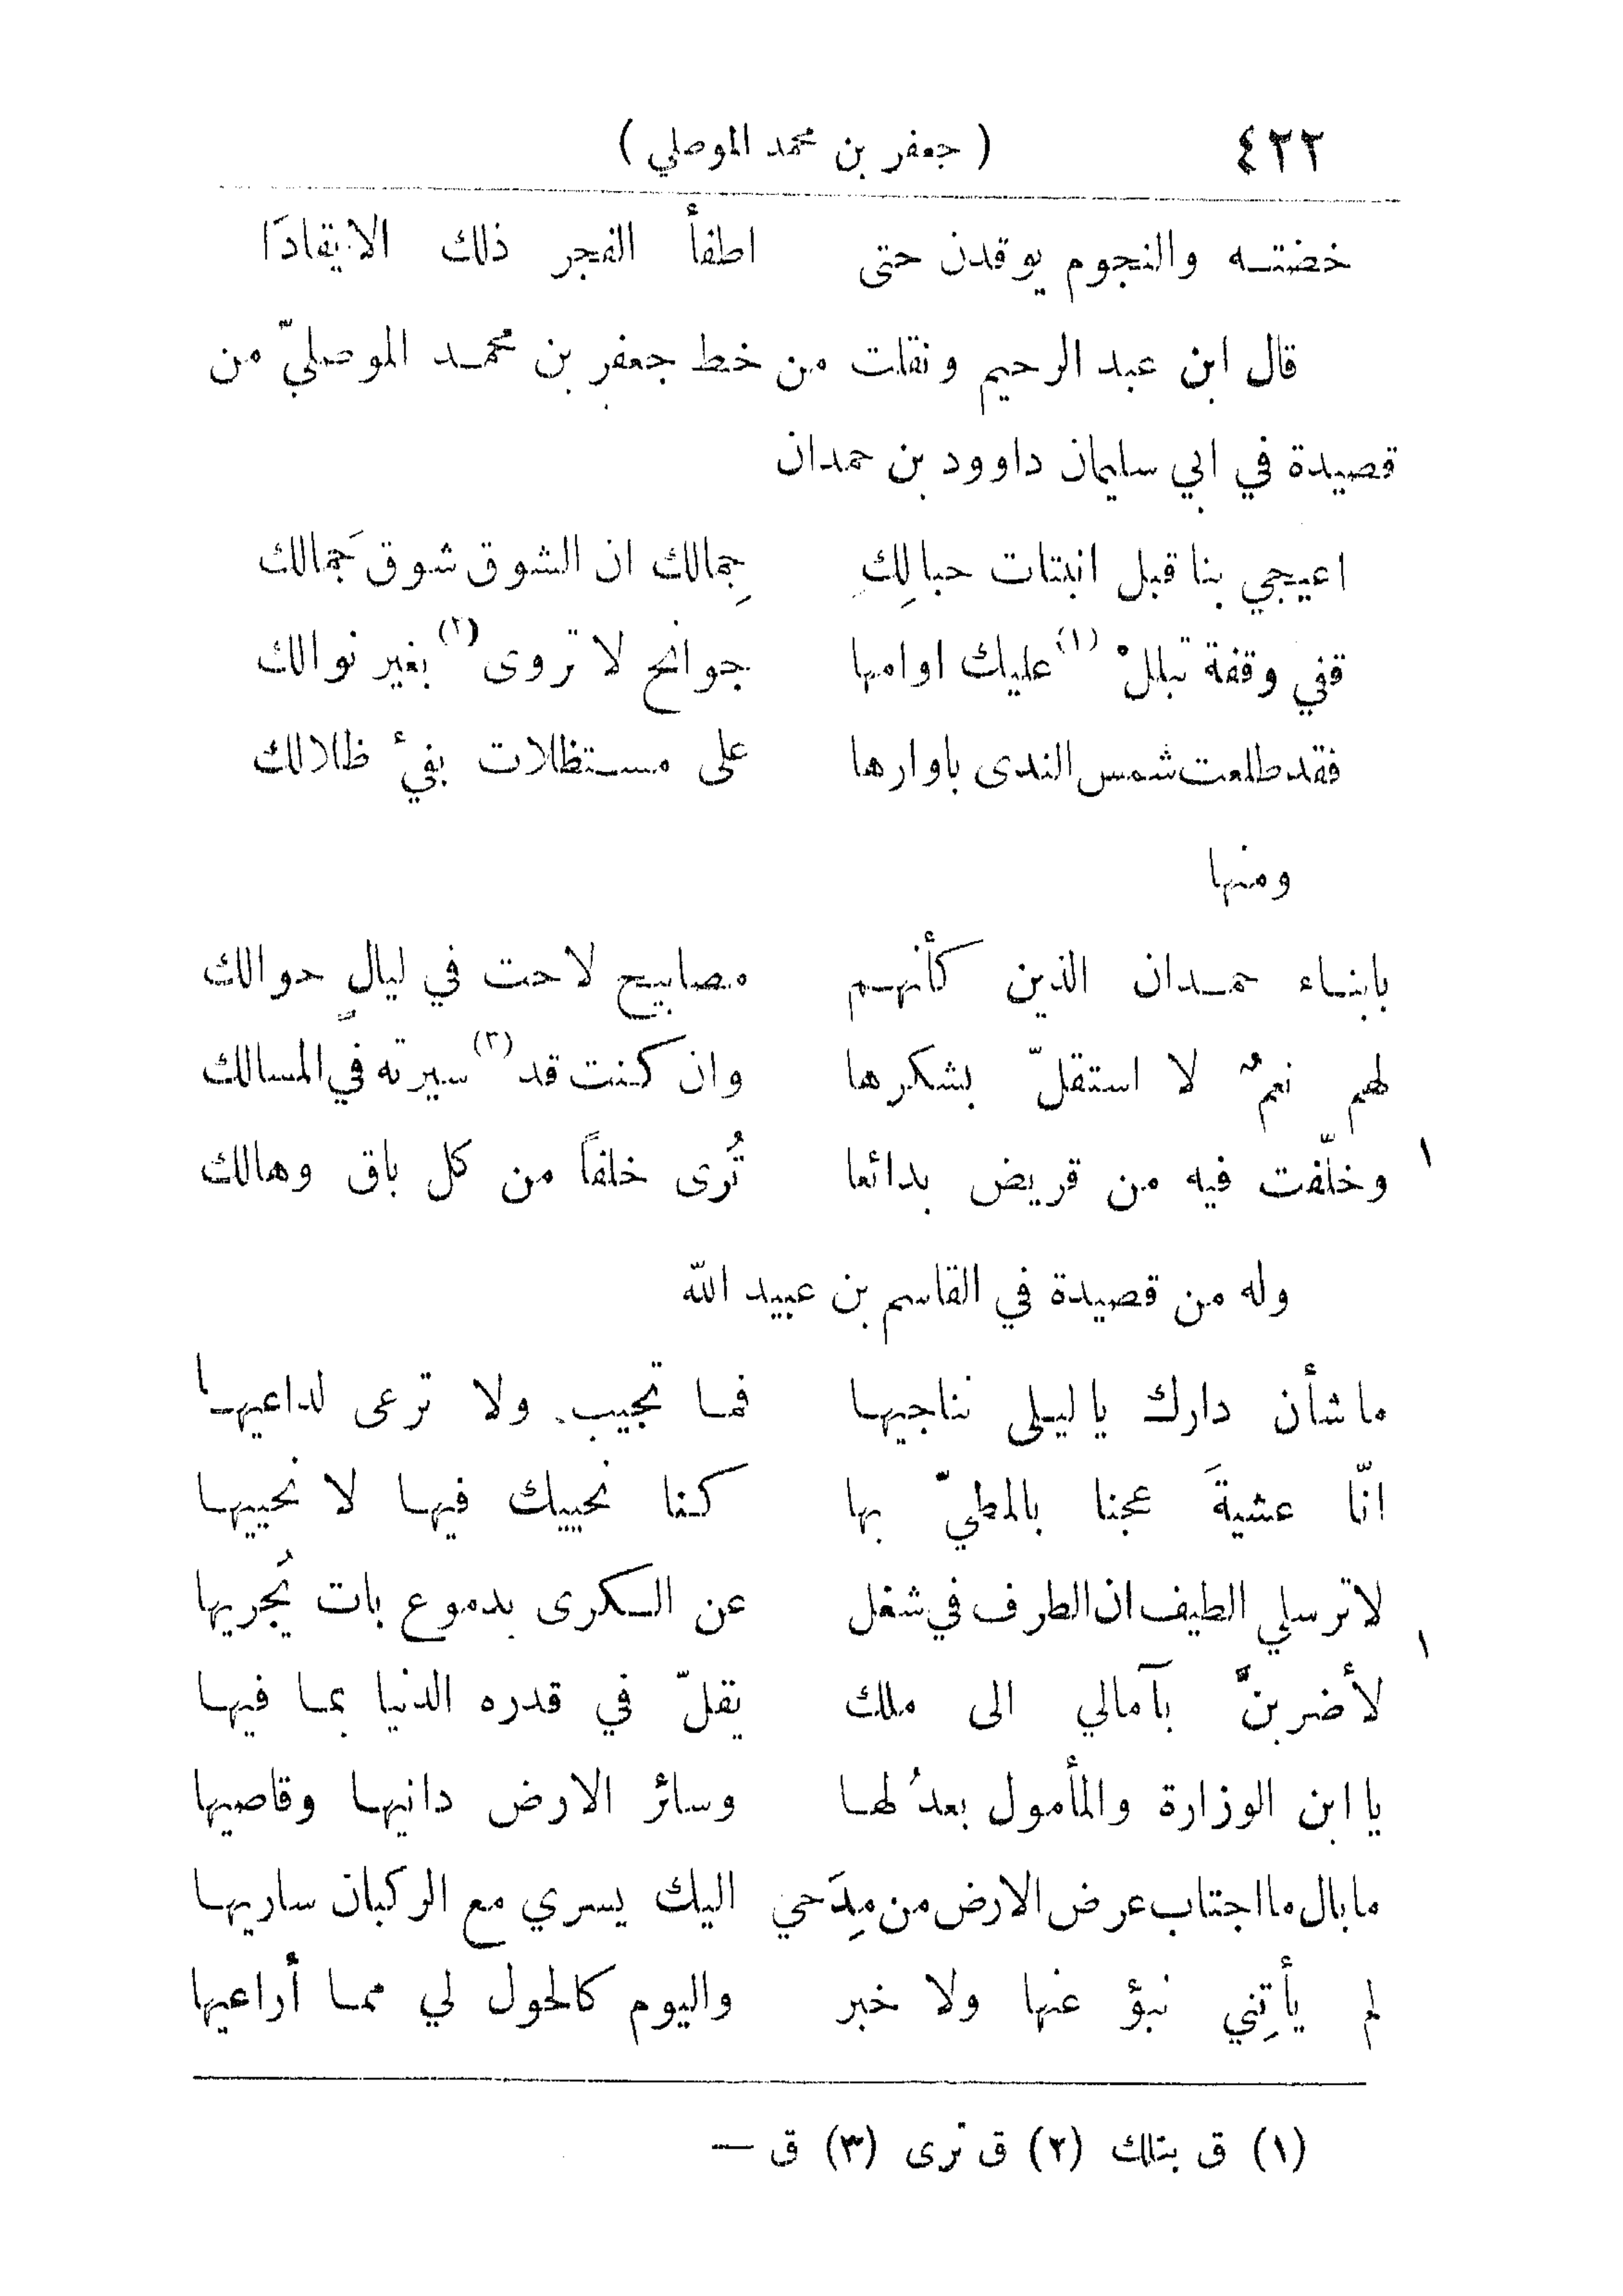 ٤٢٢ ( جعفر بن محمد الموصلي )
خضتـه والنجوم يوقدن حتى اطفأ الفجر ذلك الايقادَا
قال ابن عبد الرحيم ونقلت من خط جعفر بن محمـد الموصليّ من
قصيدة في ابي سليمان داوود بن حمدان
اعيجي بنا قبل انبتات حبالِكِ جِمالك ان الشوق شوق جَمالك
قفي وقفة تبللْ (١) عليك اوامها جوانح لا تروى (٢) بغير نوالك
فقد طلعت شمس الندى باوارها على مستظلات بفيْ ظلالك
ومنها
بابنـاء حمـدان الذين كأنهـم مصابيح لاحت في ليالٍ حوالك
لهم نعمٌ لا استقلّ بشكرها وان كنت قد (٣) سيرته في المسالك
وخلّفت فيه من قريض بدائعا تُرى خلفاً من كل باق وهالك
١
وله من قصيدة في القاسم بن عبيد اللّه
ما شأن دارك يا ليـلى نناجيهـا فمـا تجيب ولا ترعى لداعيهـا
انّا عشيةَ عجنا بالمطيّ بها كـنا نحييك فيهـا لا نحييهـا
لا ترسلي الطيف ان الطرف في شغل عن السكرى بدموع بات يُجريها
١
لأضربنّ بآمالي الى ملك يقلّ في قدره الدنيا بمـا فيهـا
يا ابن الوزارة والمأمول بعدُ لهـا وسائر الارض دانيهـا وقاصيها
ما بال ما اجتاب عرض الارض من مِدَحي اليك يسري مع الركبان ساريهـا
لم يأتِني نبؤ عنها ولا خبر واليوم كالحول لي ممـا أراعيها
(١) ق بتلك (٢) ق ترى (٣) ق —